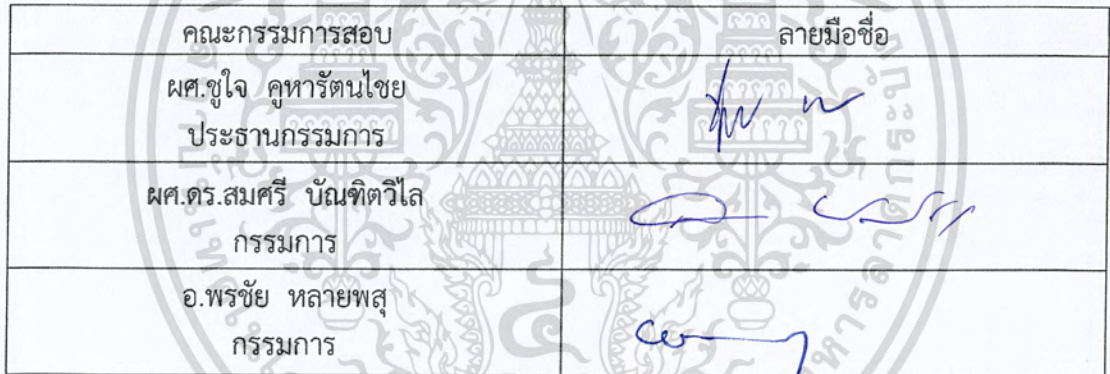 คณะกรรมการสอบ ลายมือชื่อ
ผศ.ชูใจ คูหารัตนไชย
ประธานกรรมการ
ผศ.ดร.สมศรี บัณฑิตวิไล
กรรมการ
อ.พรชัย หลายพสุ
กรรมการ